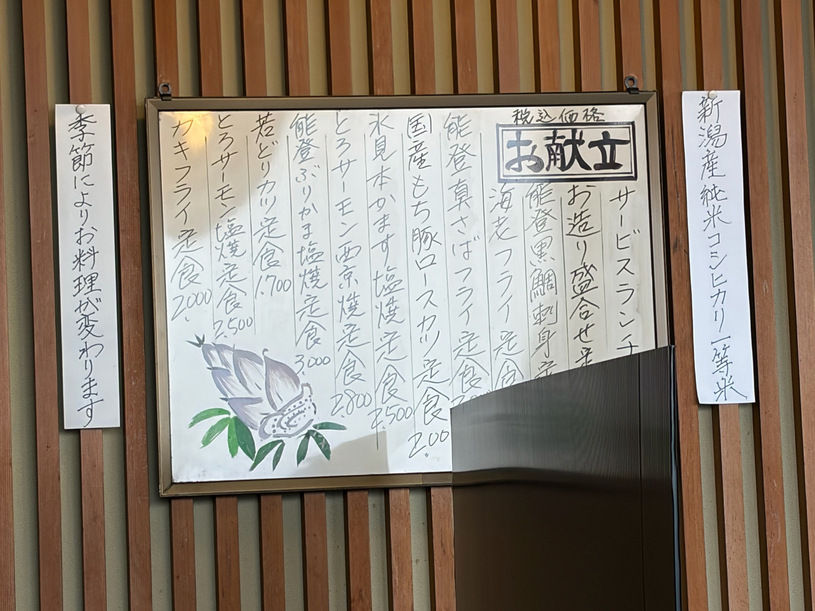 新潟産純米コシヒカリ一等米
税込価格
お献立
サービスランチ
お造り盛合せ定
能登黒鯛刺身定
海老フライ定食
能登真さばフライ定食
国産もち豚ロースカツ定食 2.00
氷見本かます塩焼定食 2.500
とろサーモン西京焼定食 2.800
能登ぶりかま塩焼定食 3.000
若どりカツ定食 1.700
とろサーモン塩焼定食 2.500
カキフライ定食 2.000
季節によりお料理が変わります